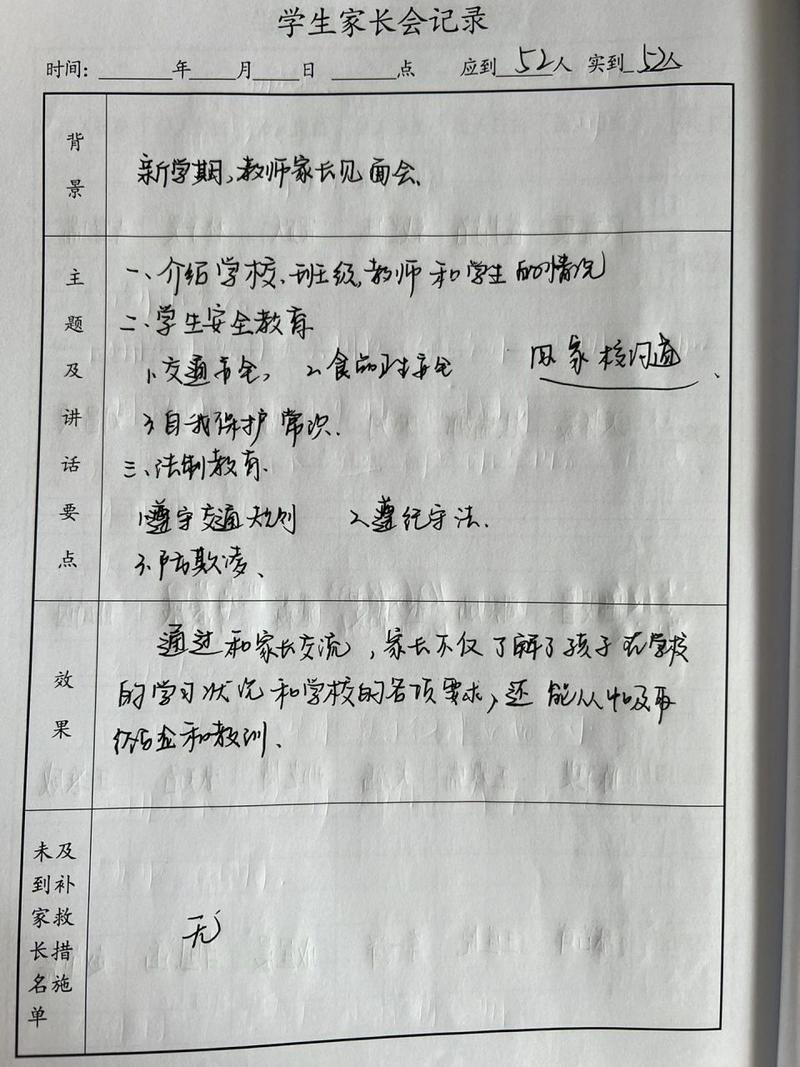 学生家长会记录
时间：____年____月____日 ____点 应到 52人 实到 52人
背景
新学期、教师家长见面会、
主题及讲话要点
一、介绍学校、班级、教师和学生的情况
二、学生安全教育
1、交通安全、 2、食品卫生安全 家校沟通、
3、自我保护常识.
三、法制教育.
1、遵守交通规则 2、遵纪守法.
3、防欺凌、
效果
通过和家长交流，家长不仅了解了孩子在学校
的学习状况和学校的各项要求，还能从中吸取
经验和教训、
未到家长名单
及补救措施
无